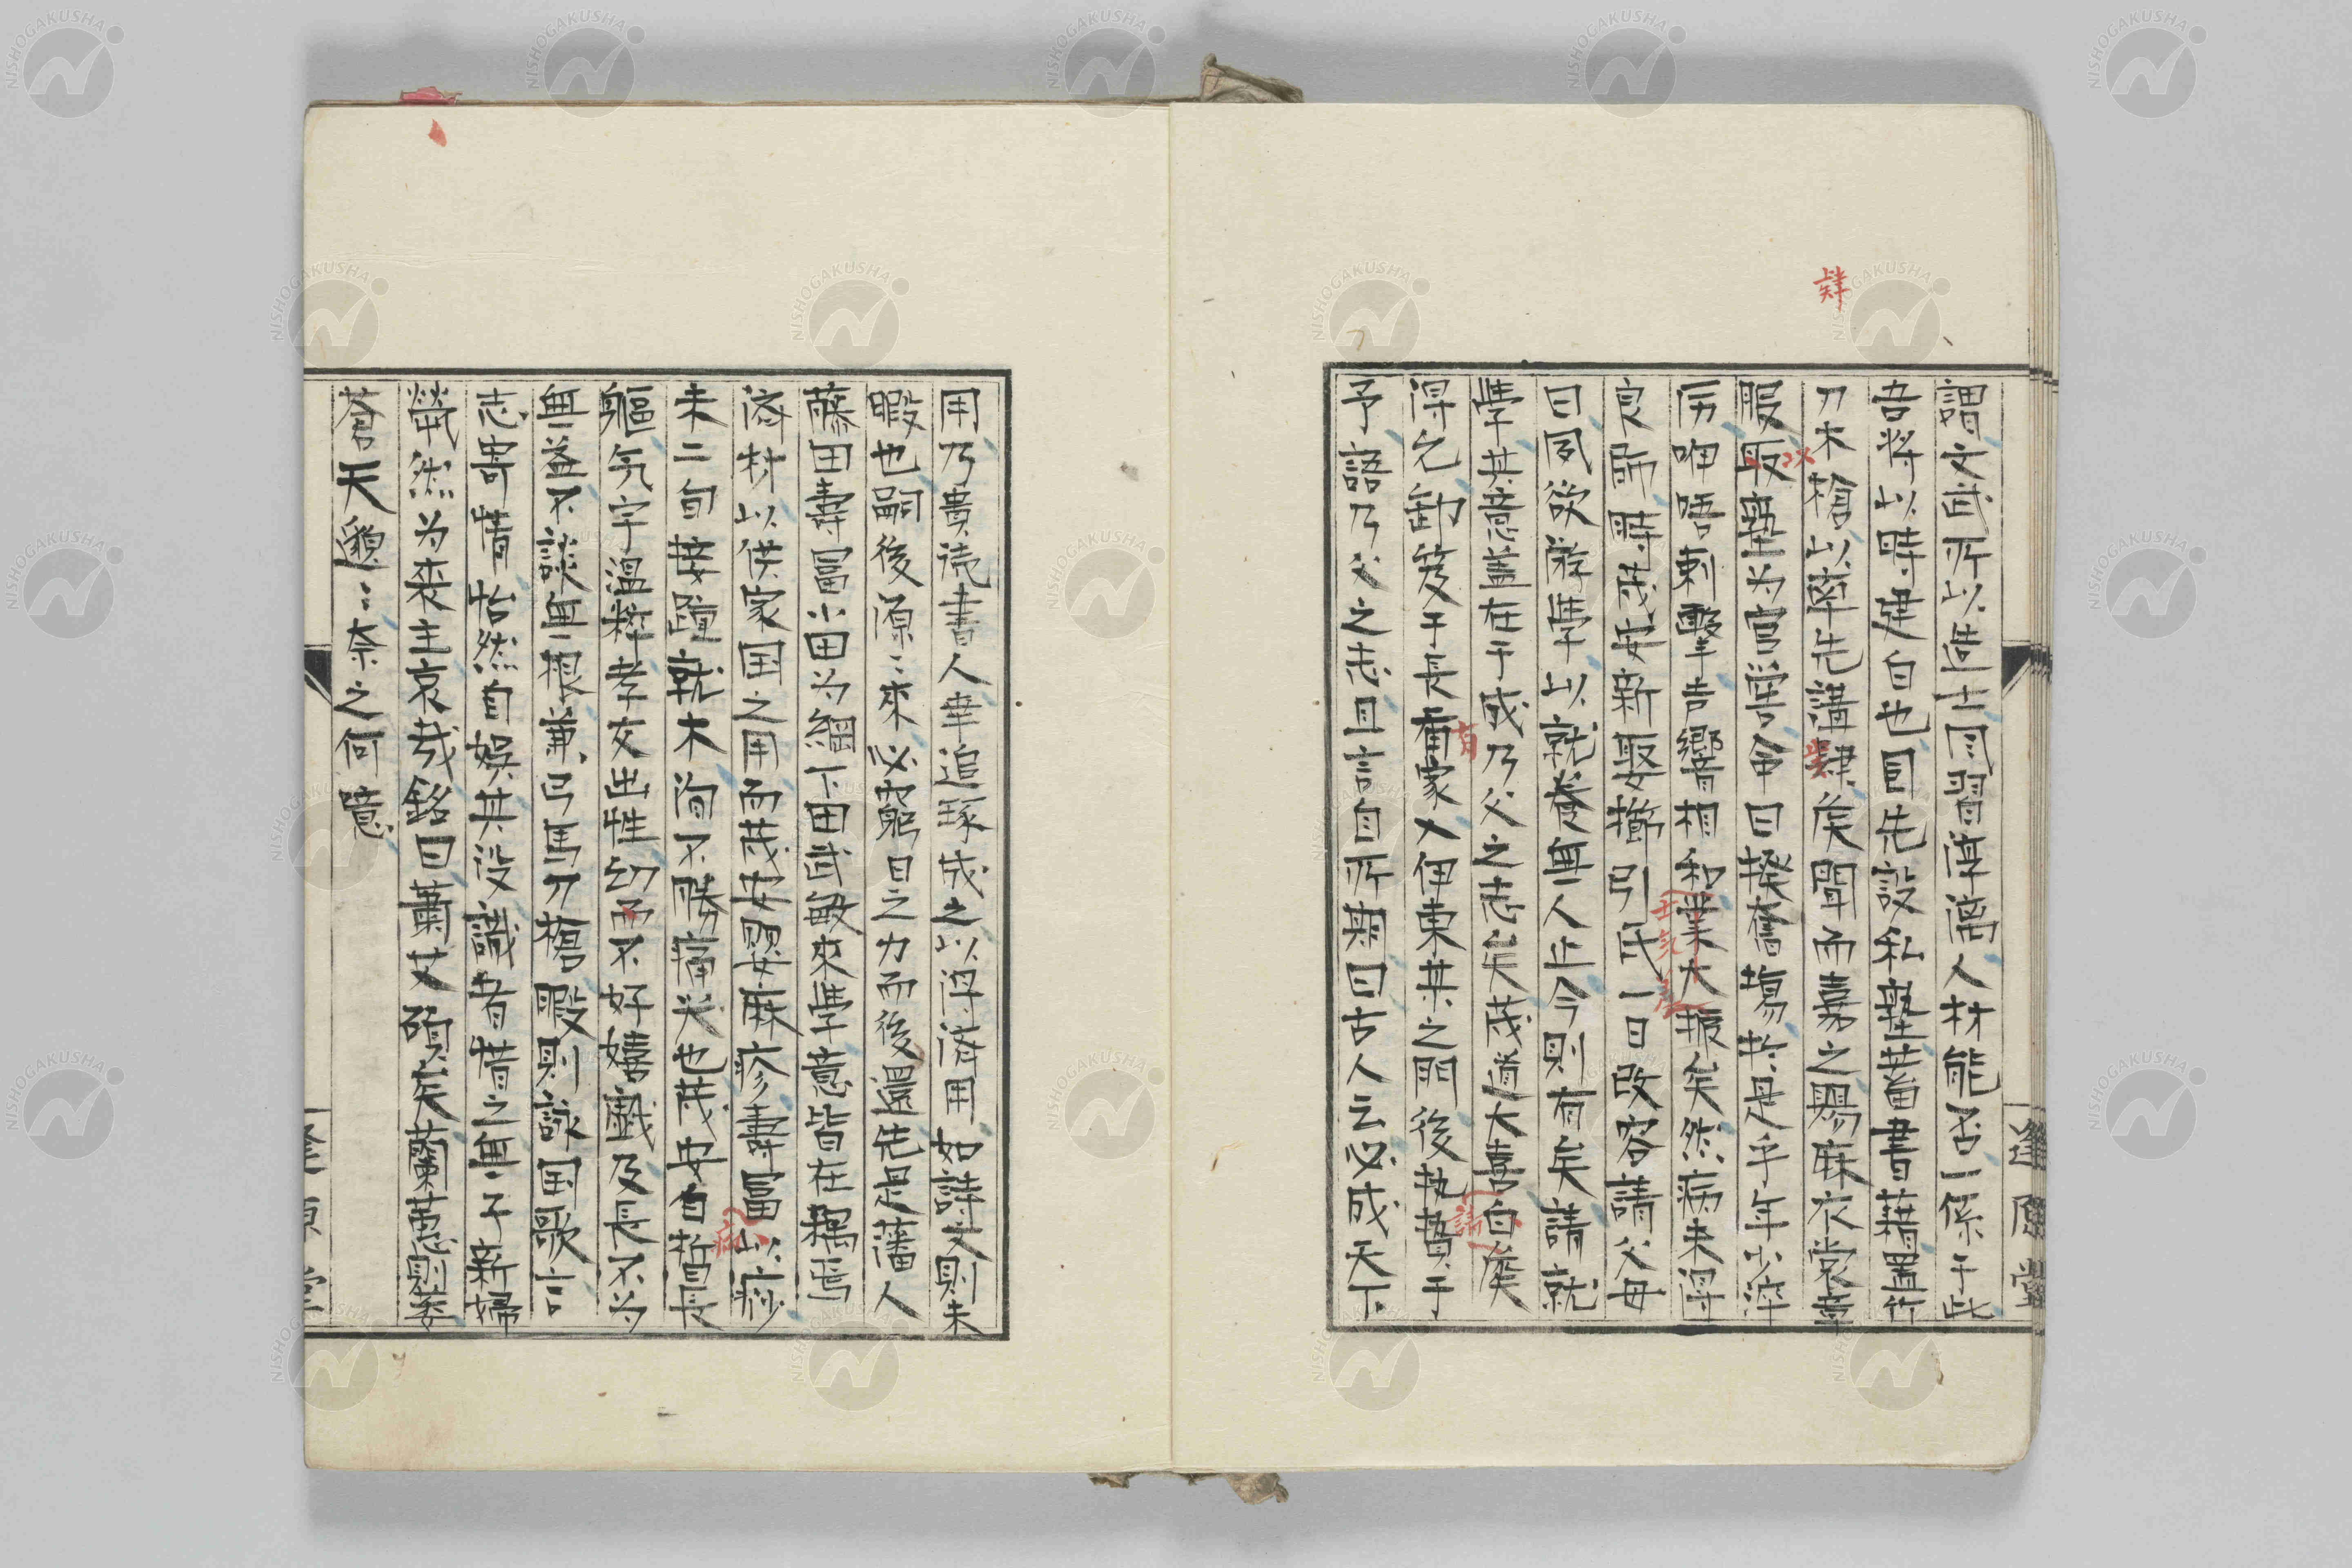 肄
謂文武所以造士同習淳漓人材能否一係于此
吾将以時建白也因先設私塾蓄書藉置竹
刀木槍以率先講肄侯聞而嘉之賜麻衣裳章
服取塾为官黌命曰揆奮蕩於是乎年少淬
厉呻唔刺擊声響相和業大振矣然病未得
良師時茂安新娶櫛引氏一日改容請父母
曰夙欲游學以就養無人止今則有矣請就
學其意蓋在于成乃父之志矣茂遵大喜白侯
得允卸笈于長崎家又伊東其之門後執贄于
予語乃父之志且言自所期曰古人云必成天下
以
肄
壬亥
有
請
逢原堂
用乃貴読書人幸追琢成之以得済用如詩文則未
暇也嗣後源〻来必窮日之力而後還先是藩人
藤田壽冨小田为綱下田武敏來學意皆在
済材以供家国之用而茂安嬰麻疹壽冨以痧
未二旬接踵就木洵不勝痛哭也茂安自哲長
軀気宇温粋孝友出性幼而不好嬉戯及長不为
無益不談無根兼弓馬刀槍暇則詠国歌言
志寄情怡然自娯其没識者惜之無子新婦
煢然为来主哀哉銘曰蕭艾碩矣蘭蕙則萎
蒼天邈〻奈之何噫
病
逢原堂
NISHOGAKUSHA